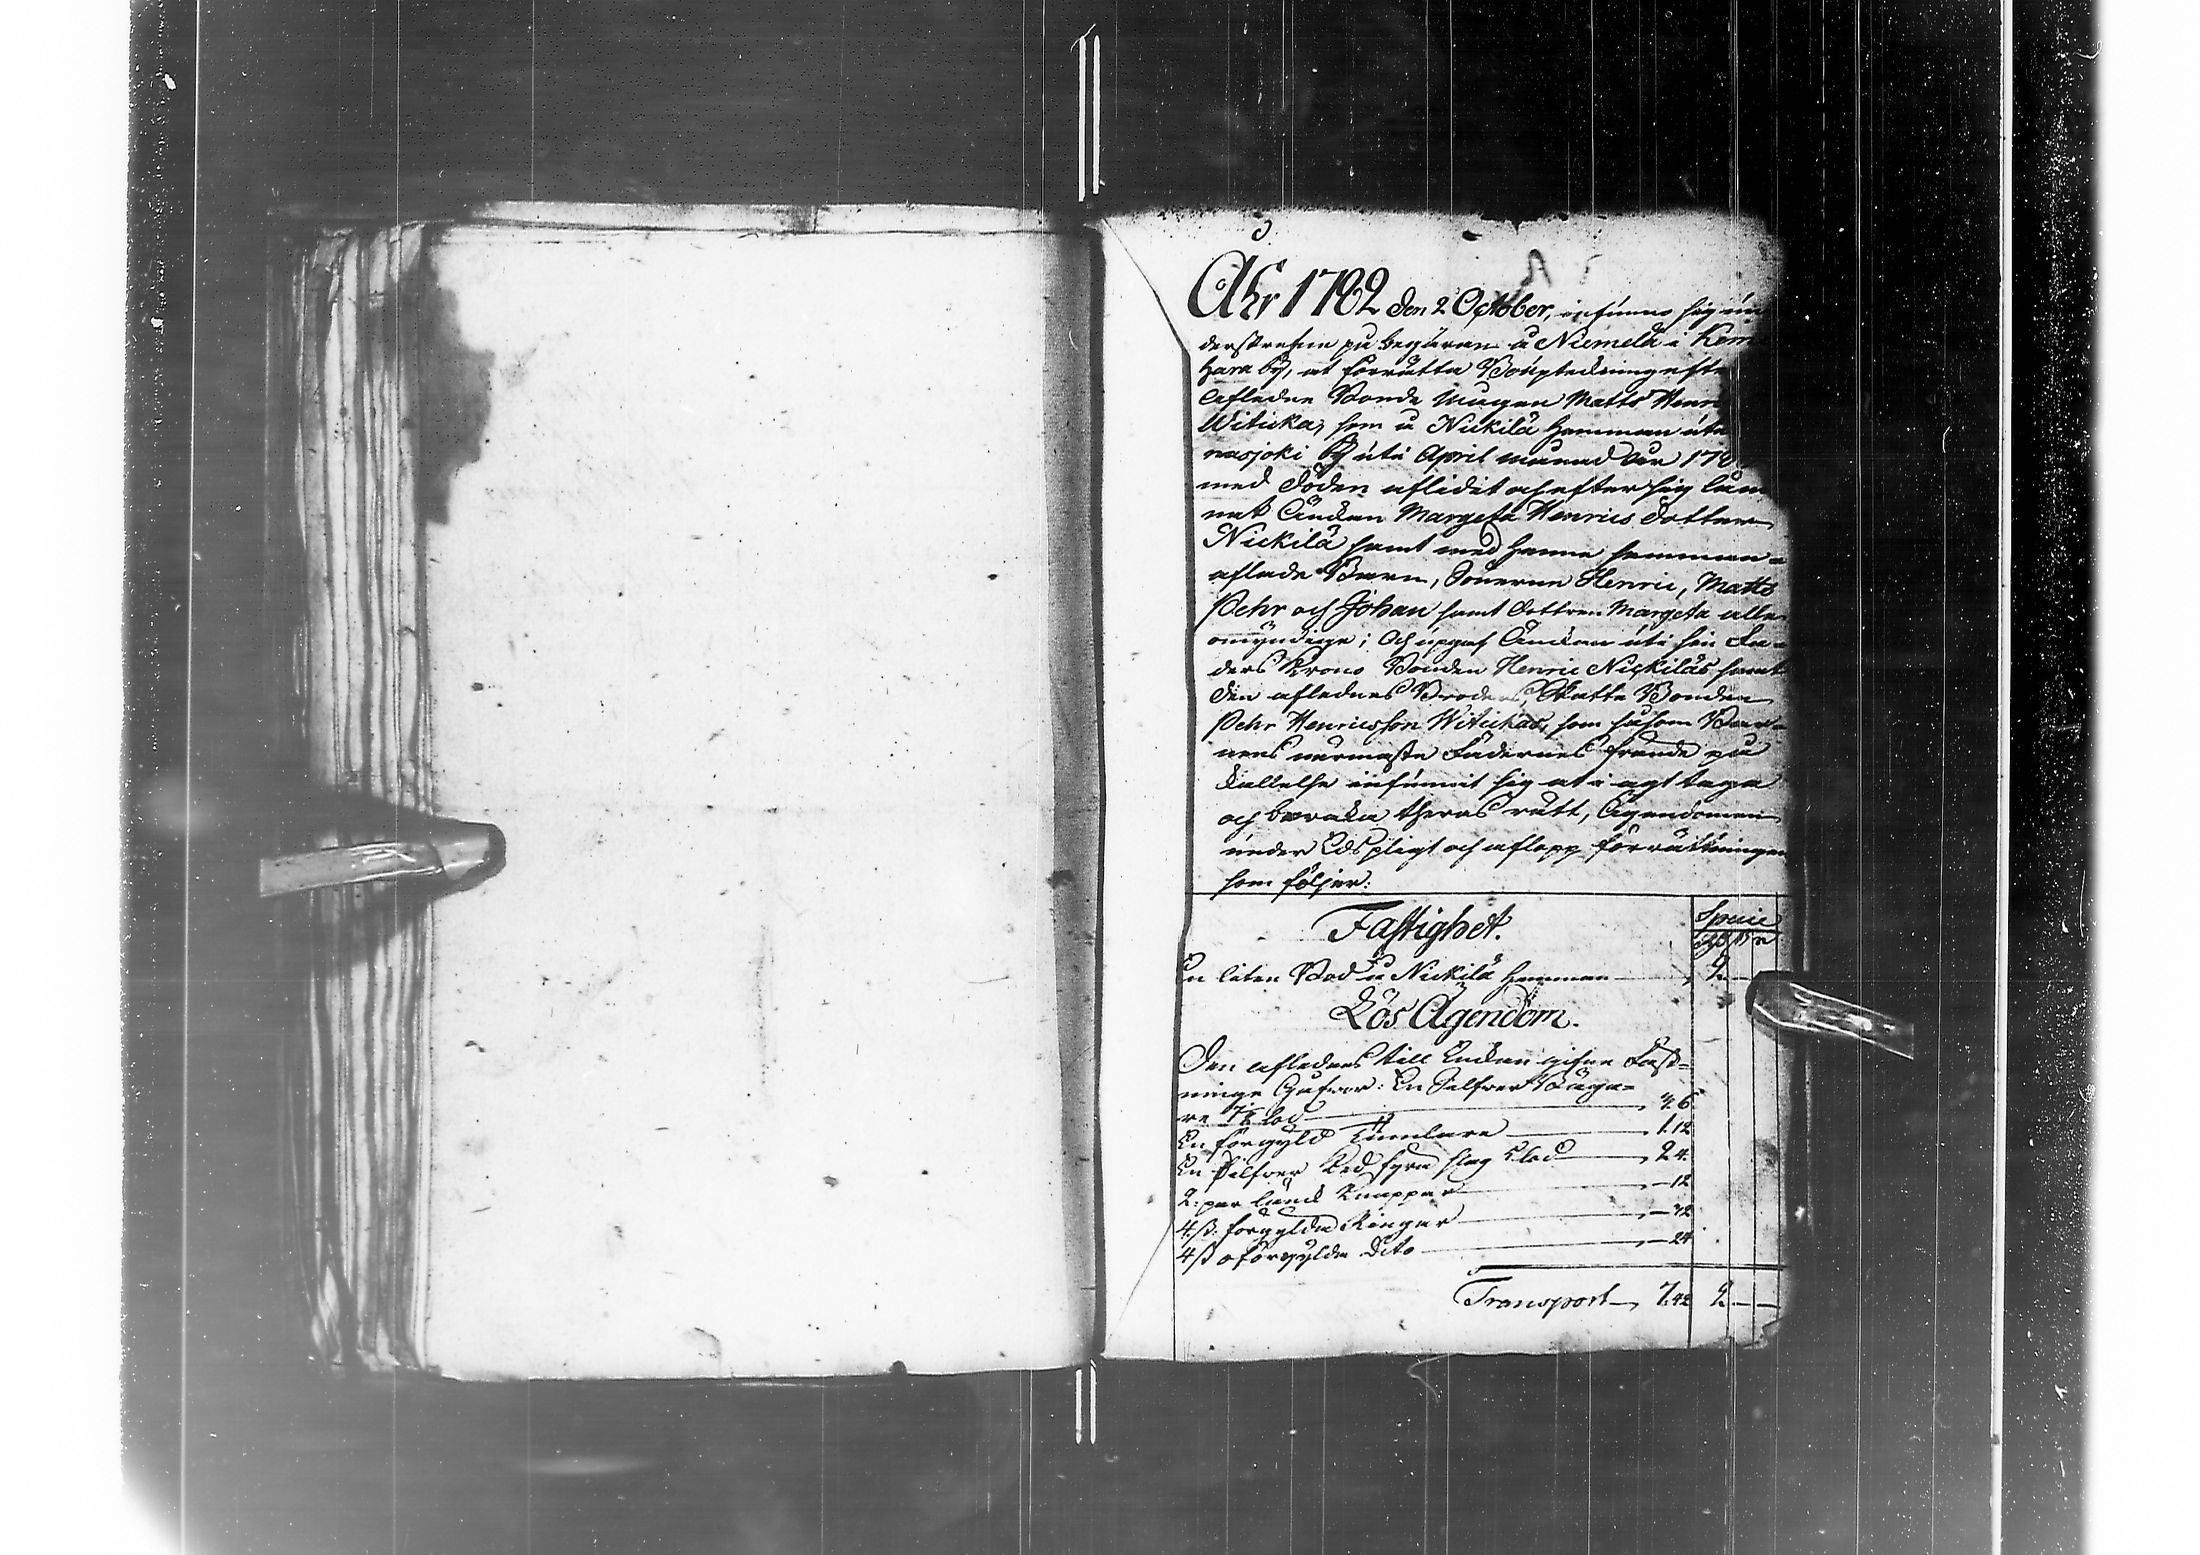 Åhr 1782 den 2 October, infunno sig un
derskrefne på begäran å Niemelä i Kem
hara by, at förrätta Bouptekning efte
aflednе Bonde mågen Matts Henr
Witicka, som å Nickilä Hemman uti
nasjoki By uti April månad Åhr 178
med döden aflidit och efter sig läm
nat Änkan Margeta Henrics dotter
Nickilä samt med henne samman-
aflade Barn, Sönerne Henric, Matts
Pehr och Johan samt dottren Margeta alla
omyndige; Och upgaf Änkan uti sin Fa-
ders Krono Bonden Henric Nickiläs samt
den aflednes Broders, Skatte Bonden
Pehr Henricsson Witickas, som såsom Bar-
nens närmaste Fädernes frände på
kallelse infunnit sig at i agt taga
och bevaka theras rätt, Ägendomen
under Eds pligt och aflopp förrättningen
som följer:
Fastighet.
Specie
En liten Bod å Nickilä Hemman — 2 —
Lös Ägendom.
Den aflednes till Enkan gifne Fäst-
ninge Gåfvor: En Silfver Bäga-
re 7½ lod — 3. 6
En förgyld Tumlare — 1. 12
En Silfver Ked fyra slag 5 lod — 2. 4.
2: par länk Knappar — 12
4 st. förgylda Ringar — 32
4 st oförgylda Dito — 24
Transport — 7. 42 2 — —